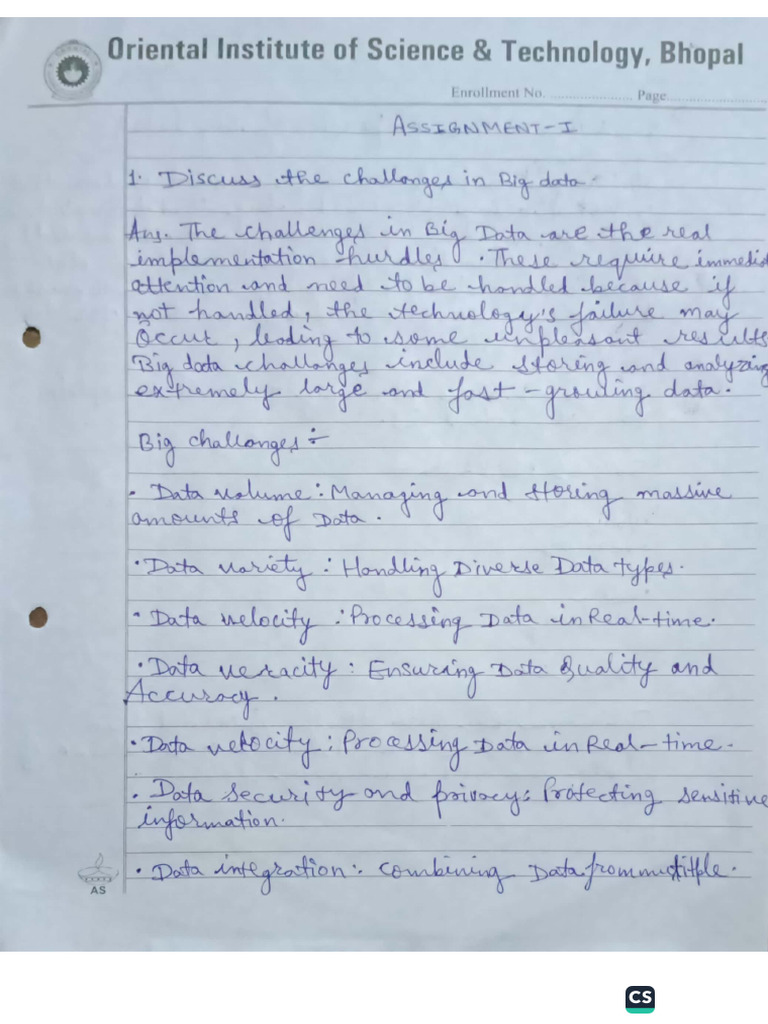 Oriental Institute of Science & Technology, Bhopal
Enrollment No. ...................... Page.......................
ASSIGNMENT-I
1. Discuss the challanges in Big data -
Ans. The challenges in Big Data are the real
implementation hurdles. These require immedi
attention and need to be handled because if
not handled, the technology's failure may
occur, leading to some unpleasant results
Big data challanges include storing and analyzing
extremely large and fast-growing data.
Big challanges :-
- Data volume: Managing and storing massive
amounts of Data.
• Data variety: Handling Diverse Data types.
- Data velocity: Processing Data in Real-time.
• Data veracity: Ensuring Data Quality and
Accuracy.
• Data velocity: Processing Data in Real-time.
• Data security and privacy: Protecting sensitive
information.
• Data integration: Combining Data from
AS
CS